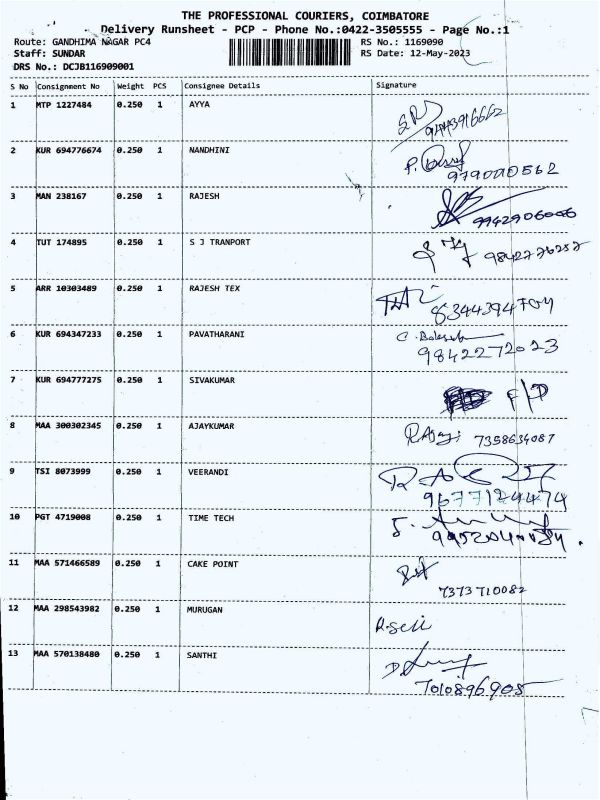 THE PROFESSIONAL COURIERS, COIMBATORE
Delivery Runsheet - PCP - Phone No.:0422-3505555 - Page No.:1
Route: GANDHIMA NAGAR PC4 RS No.: 1169090
Staff: SUNDAR RS Date: 12-May-2023
DRS No.: DCJB116909001
S No Consignment No Weight PCS Consignee Details Signature
1 MTP 1227484 0.250 1 AYYA
9443916662
2 KUR 694776674 0.250 1 NANDHINI
9790010562
3 MAN 238167 0.250 1 RAJESH
9942906006
4 TUT 174895 0.250 1 S J TRANPORT
9842776257
5 ARR 10303489 0.250 1 RAJESH TEX
8344394704
6 KUR 694347233 0.250 1 PAVATHARANI
9842272023
7 KUR 694777275 0.250 1 SIVAKUMAR
8 MAA 300302345 0.250 1 AJAYKUMAR
7358634087
9 TSI 8073999 0.250 1 VEERANDI
9677124474
10 PGT 4719008 0.250 1 TIME TECH
11 MAA 571466589 0.250 1 CAKE POINT
7373710082
12 MAA 298543982 0.250 1 MURUGAN
R.Seli
13 MAA 570138480 0.250 1 SANTHI
7010896905